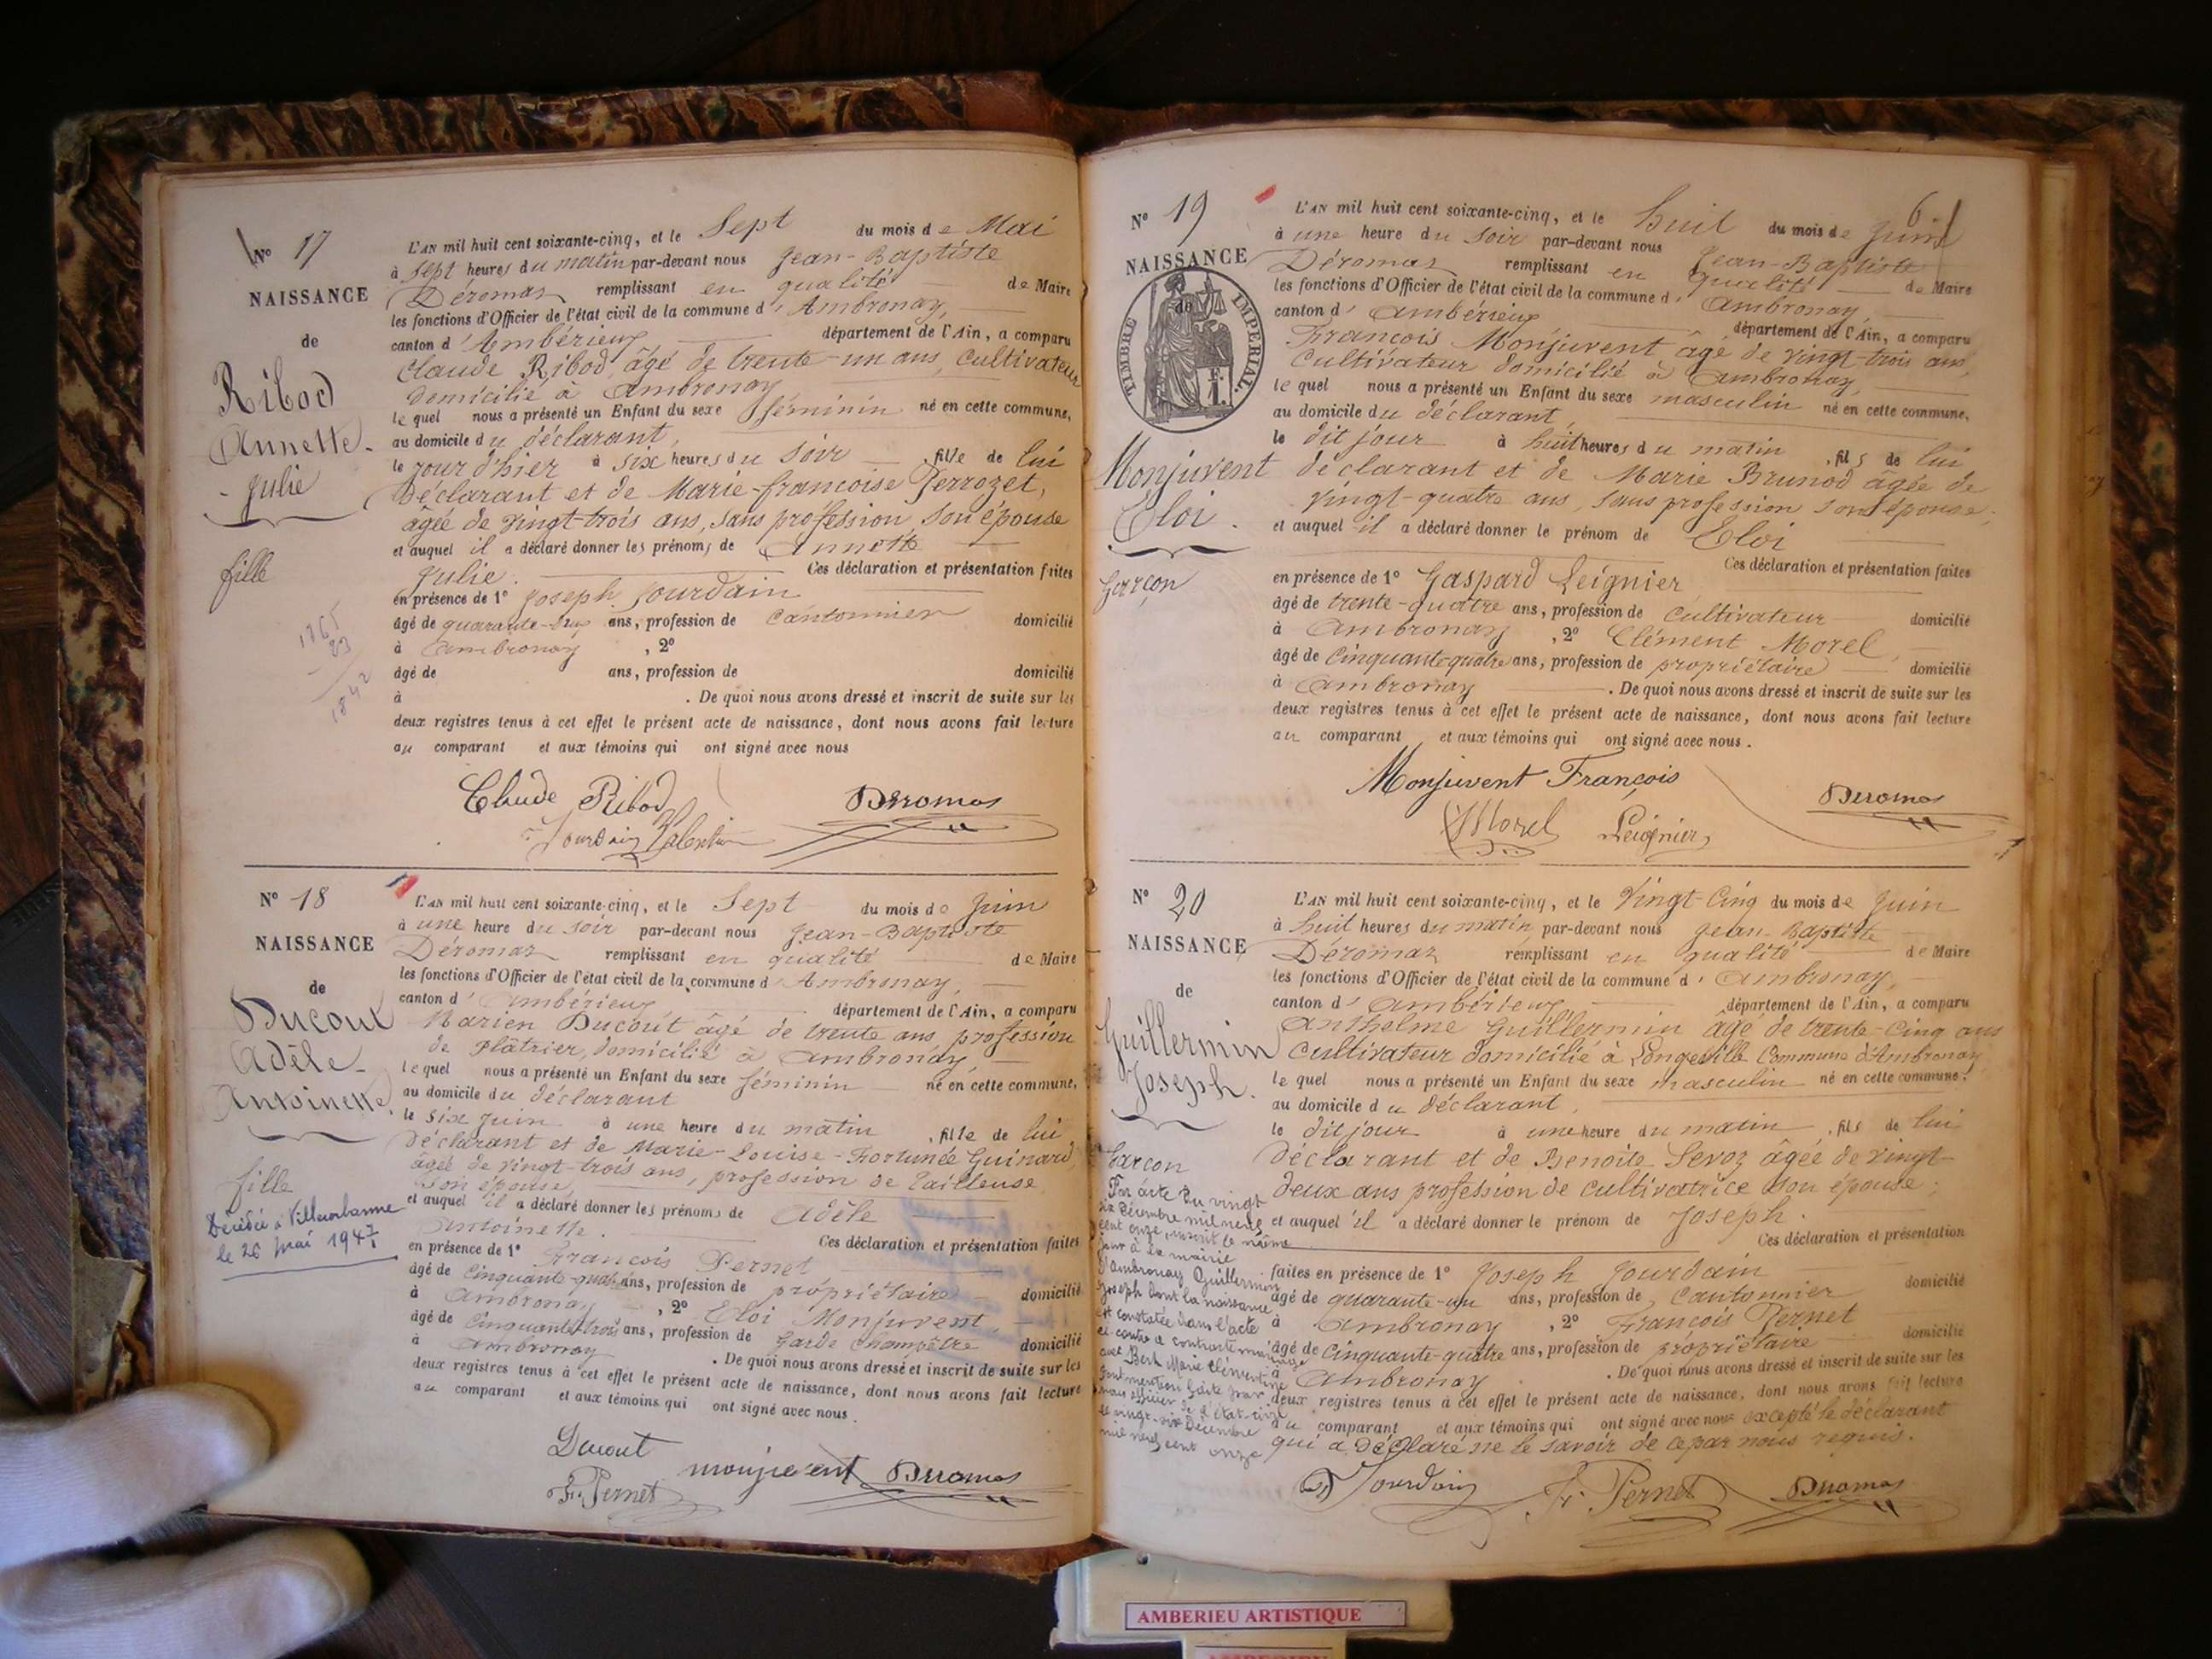 N° 17
NAISSANCE
de
Ribod
Annette-
-Julie
fille
1865
23
1842
L'AN mil huit cent soixante-cinq, et le Sept du mois de Mai
à sept heures du matin par-devant nous Jean-Baptiste
Déromas remplissant en qualité de Maire
les fonctions d'Officier de l'état civil de la commune d'Ambronay,
canton d'Ambérieux département de l'Ain, a comparu
Claude Ribod, âgé de trente-un ans, cultivateur
domicilié à Ambronay
lequel nous a présenté un Enfant du sexe féminin né en cette commune,
au domicile du déclarant,
le jour d'hier à six heures du soir, fille de lui
déclarant et de Marie-françoise Perrozet,
âgée de vingt-trois ans, sans profession, son épouse
et auquel il a déclaré donner les prénoms de Annette
Julie. Ces déclaration et présentation faites
en présence de 1° Joseph Jourdain
âgé de quarante-un ans, profession de Cantonnier domicilié
à Ambronay, 2°
âgé de ans, profession de domicilié
à . De quoi nous avons dressé et inscrit de suite sur les
deux registres tenus à cet effet le présent acte de naissance, dont nous avons fait lecture
au comparant et aux témoins qui ont signé avec nous
Claude Ribod Deromas
Jourdain Valentin
N° 18
NAISSANCE
de
Ducout
Adèle-
Antoinette.
fille
Décédée à Villeurbanne
le 26 Mai 1947
L'AN mil huit cent soixante-cinq, et le Sept du mois de Juin
à une heure du soir par-devant nous Jean-Baptiste
Déromas remplissant en qualité de Maire
les fonctions d'Officier de l'état civil de la commune d'Ambronay,
canton d'Ambérieux département de l'Ain, a comparu
Marien Ducout âgé de trente ans, profession
de Plâtrier, domicilié à Ambronay,
lequel nous a présenté un Enfant du sexe féminin né en cette commune,
au domicile du déclarant
le six juin à une heure du matin, fille de lui
déclarant et de Marie-Louise-Fortunée Guinard,
âgée de vingt-trois ans, profession de tailleuse
son épouse,
et auquel il a déclaré donner les prénoms de Adèle
Antoinette. Ces déclaration et présentation faites
en présence de 1° François Pernet
âgé de Cinquante-quatre ans, profession de propriétaire domicilié
à Ambronay, 2° Eloi Monjuvent,
âgé de Cinquante trois ans, profession de Garde Champêtre domicilié
à Ambronay . De quoi nous avons dressé et inscrit de suite sur les
deux registres tenus à cet effet le présent acte de naissance, dont nous avons fait lecture
au comparant et aux témoins qui ont signé avec nous.
Ducout monjuvent Deromas
F. Pernet
6
N° 19
NAISSANCE
de
TIMBRE IMPERIAL.
Monjuvent
Eloi.
Garçon
L'AN mil huit cent soixante-cinq, et le huit du mois de Juin
à une heure du soir par-devant nous Jean-Baptiste
Déromas remplissant en qualité de Maire
les fonctions d'Officier de l'état civil de la commune d'Ambronay,
canton d'Ambérieux département de l'Ain, a comparu
François Monjuvent âgé de vingt-trois ans,
Cultivateur domicilié à Ambronay,
lequel nous a présenté un Enfant du sexe masculin né en cette commune,
au domicile du déclarant,
le dit jour à huit heures du matin, fils de lui
déclarant et de Marie Brunod âgée de
vingt-quatre ans, sans profession son épouse,
et auquel il a déclaré donner le prénom de Eloi
Ces déclaration et présentation faites
en présence de 1° Gaspard Leignier
âgé de trente-quatre ans, profession de cultivateur domicilié
à Ambronay, 2° Clément Morel,
âgé de Cinquante quatre ans, profession de propriétaire domicilié
à Ambronay . De quoi nous avons dressé et inscrit de suite sur les
deux registres tenus à cet effet le présent acte de naissance, dont nous avons fait lecture
au comparant et aux témoins qui ont signé avec nous.
Monjuvent François Deromas
Morel Leignier
N° 20
NAISSANCE
de
Guillermin
Joseph.
Garçon
Par acte du vingt
six Décembre mil neuf
cent onze, inscrit le même
jour à la mairie
d'Ambronay Guillermin
Joseph dont la naissance
est constatée dans l'acte
ci-contre a contracté mariage
avec Bert Marie Clémentine
Dont mention faite par
nous officier de l'état-civil
le vingt-six Décembre
mil neuf cent onze
L'AN mil huit cent soixante-cinq, et le Vingt-Cinq du mois de Juin
à huit heures du matin par-devant nous Jean-Baptiste
Déromas remplissant en qualité de Maire
les fonctions d'Officier de l'état civil de la commune d'Ambronay,
canton d'Ambérieux département de l'Ain, a comparu
Anthelme Guillermin âgé de trente-Cinq ans
cultivateur domicilié à Longeville Commune d'Ambronay
lequel nous a présenté un Enfant du sexe masculin né en cette commune,
au domicile du déclarant,
le dit jour à une heure du matin, fils de lui
déclarant et de Benoite Sevoz âgée de vingt-
deux ans profession de cultivatrice son épouse;
et auquel il a déclaré donner le prénom de Joseph.
Ces déclaration et présentation
faites en présence de 1° Joseph Jourdain
âgé de quarante-un ans, profession de Cantonnier domicilié
à Ambronay, 2° François Pernet
âgé de Cinquante-quatre ans, profession de propriétaire domicilié
à Ambronay . De quoi nous avons dressé et inscrit de suite sur les
deux registres tenus à cet effet le présent acte de naissance, dont nous avons fait lecture
au comparant et aux témoins qui ont signé avec nous excepté le déclarant
qui a déclaré ne le savoir de ce par nous requis.
Jourdain F. Pernet Deromas
AMBERIEU ARTISTIQUE